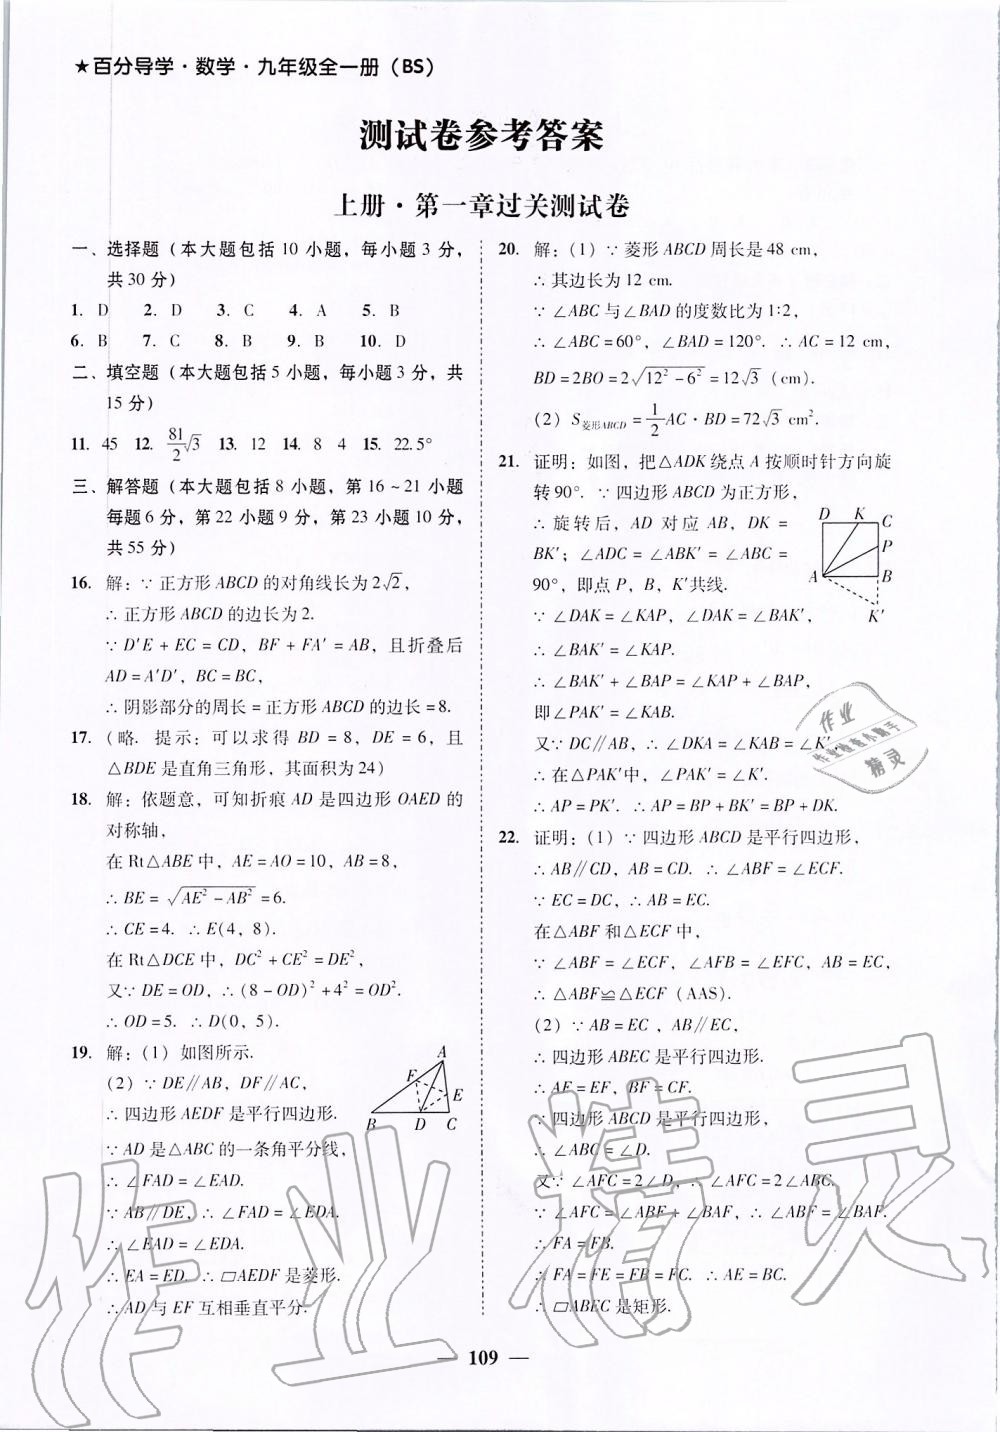 ★百分导学·数学·九年级全一册（BS）
测试卷参考答案
上册·第一章过关测试卷
一、选择题（本大题包括 10 小题，每小题 3 分，
共 30 分）
1. D 2. D 3. C 4. A 5. B
6. B 7. C 8. B 9. B 10. D
二、填空题（本大题包括 5 小题，每小题 3 分，共
15 分）
11. 45 12. 81/2√3 13. 12 14. 8 4 15. 22.5°
三、解答题（本大题包括 8 小题，第 16～21 小题
每题 6 分，第 22 小题 9 分，第 23 小题 10 分，
共 55 分）
16. 解：∵ 正方形 ABCD 的对角线长为 2√2，
∴ 正方形 ABCD 的边长为 2.
∵ D′E + EC = CD，BF + FA′ = AB，且折叠后
AD = A′D′，BC = BC，
∴ 阴影部分的周长 = 正方形 ABCD 的边长 = 8.
17.（略. 提示：可以求得 BD = 8，DE = 6，且
△BDE 是直角三角形，其面积为 24）
18. 解：依题意，可知折痕 AD 是四边形 OAED 的
对称轴，
在 Rt△ABE 中，AE = AO = 10，AB = 8，
∴ BE = √(AE² − AB²) = 6.
∴ CE = 4. ∴ E(4，8).
在 Rt△DCE 中，DC² + CE² = DE²，
又∵ DE = OD，∴ (8 − OD)² + 4² = OD².
∴ OD = 5. ∴ D(0，5).
19. 解：(1) 如图所示.
(2) ∵ DE∥AB，DF∥AC，
∴ 四边形 AEDF 是平行四边形.
∵ AD 是△ABC 的一条角平分线，
∴ ∠FAD = ∠EAD.
∵ AB∥DE，∴ ∠FAD = ∠EDA.
∴ ∠EAD = ∠EDA.
∴ EA = ED. ∴ ▱AEDF 是菱形.
∴ AD 与 EF 互相垂直平分.
A
F
E
B D C
20. 解：(1) ∵ 菱形 ABCD 周长是 48 cm，
∴ 其边长为 12 cm.
∵ ∠ABC 与∠BAD 的度数比为 1∶2，
∴ ∠ABC = 60°，∠BAD = 120°. ∴ AC = 12 cm，
BD = 2BO = 2√(12² − 6²) = 12√3 (cm).
(2) S菱形ABCD = 1/2 AC · BD = 72√3 cm².
21. 证明：如图，把△ADK 绕点 A 按顺时针方向旋
转 90°. ∵ 四边形 ABCD 为正方形，
∴ 旋转后，AD 对应 AB，DK =
BK′；∠ADC = ∠ABK′ = ∠ABC =
90°，即点 P，B，K′共线.
∵ ∠DAK = ∠KAP，∠DAK = ∠BAK′，
∴ ∠BAK′ = ∠KAP.
∴ ∠BAK′ + ∠BAP = ∠KAP + ∠BAP，
即∠PAK′ = ∠KAB.
又∵ DC∥AB，∴ ∠DKA = ∠KAB = ∠K′，
∴ 在△PAK′中，∠PAK′ = ∠K′.
∴ AP = PK′. ∴ AP = BP + BK′ = BP + DK.
D K C
P
A B
K′
22. 证明：(1) ∵ 四边形 ABCD 是平行四边形，
∴ AB∥CD，AB = CD. ∴ ∠ABF = ∠ECF.
∵ EC = DC，∴ AB = EC.
在△ABF 和△ECF 中，
∵ ∠ABF = ∠ECF，∠AFB = ∠EFC，AB = EC，
∴ △ABF≌△ECF (AAS).
(2) ∵ AB = EC，AB∥EC，
∴ 四边形 ABEC 是平行四边形.
∴ AF = EF，BF = CF.
∵ 四边形 ABCD 是平行四边形，
∴ ∠ABC = ∠D.
又∵ ∠AFC = 2∠D，∴ ∠AFC = 2∠ABC.
∵ ∠AFC = ∠ABF + ∠BAF，∴ ∠ABF = ∠BAF.
∴ FA = FB.
∴ FA = FE = FB = FC. ∴ AE = BC.
∴ ▱ABEC 是矩形.
作业
精灵
作业精灵
— 109 —